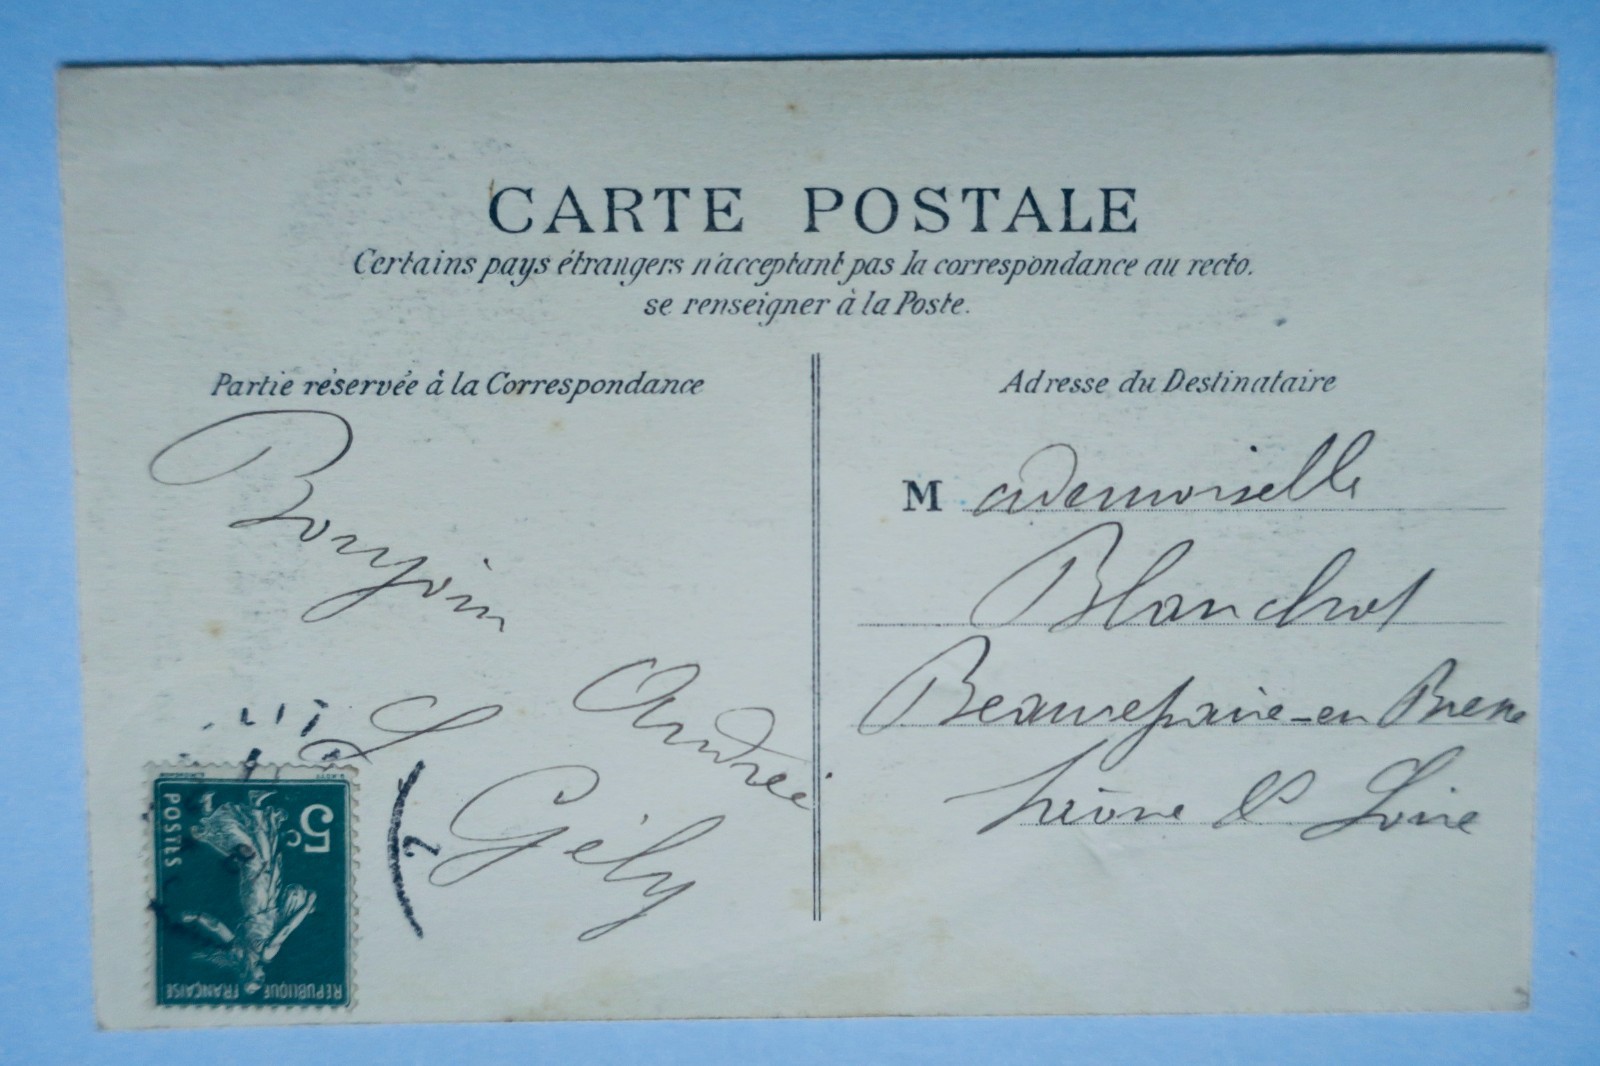 CARTE POSTALE
Certains pays étrangers n'acceptant pas la correspondance au recto.
se renseigner à la Poste.
Partie réservée à la Correspondance
Andrée
Gély
Adresse du Destinataire
Mademoiselle
Blanchot
Beaurepaire-en Bresse
Saône & Loire
5c
POSTES
REPUBLIQUE FRANÇAISE